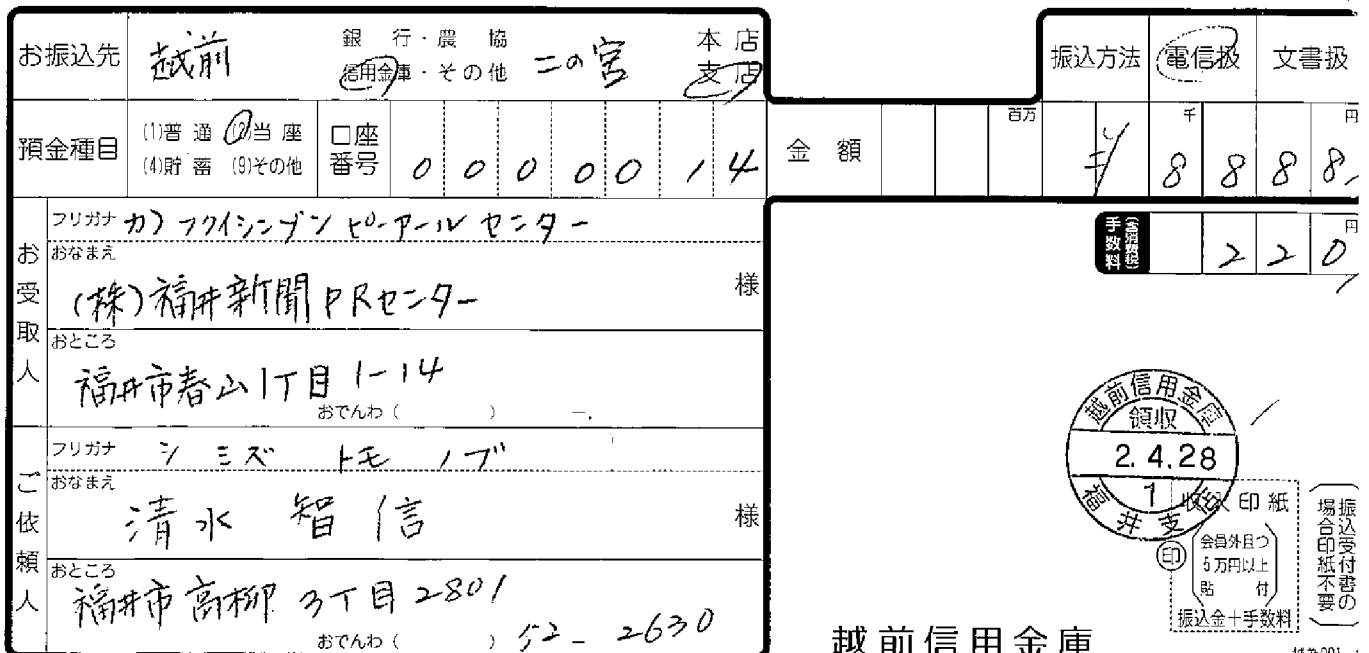 お振込先 越前 銀行・農協 信用金庫・その他 二の宮 本店 支店 振込方法 電信扱 文書扱
預金種目 (1)普通 (2)当座 (4)貯蓄 (9)その他 口座番号 0000014 金額 百万 千 円 ¥8888
手数料 (含消費税) 220 円
お受取人
フリガナ カ)フクイシンブンピーアールセンター
おなまえ
(株)福井新聞PRセンター 様
おところ
福井市春山1丁目1-14
おでんわ( ) ー
ご依頼人
フリガナ シミズ トモノブ
おなまえ
清水 智信 様
おところ
福井市高柳3丁目2801
おでんわ( ) 52-2630
越前信用金庫
領収
2.4.28
1
福井支店
収入印紙
印
会員外且つ
5万円以上
貼付
振込金+手数料
振込受付書の
場合印紙不要
越前信用金庫